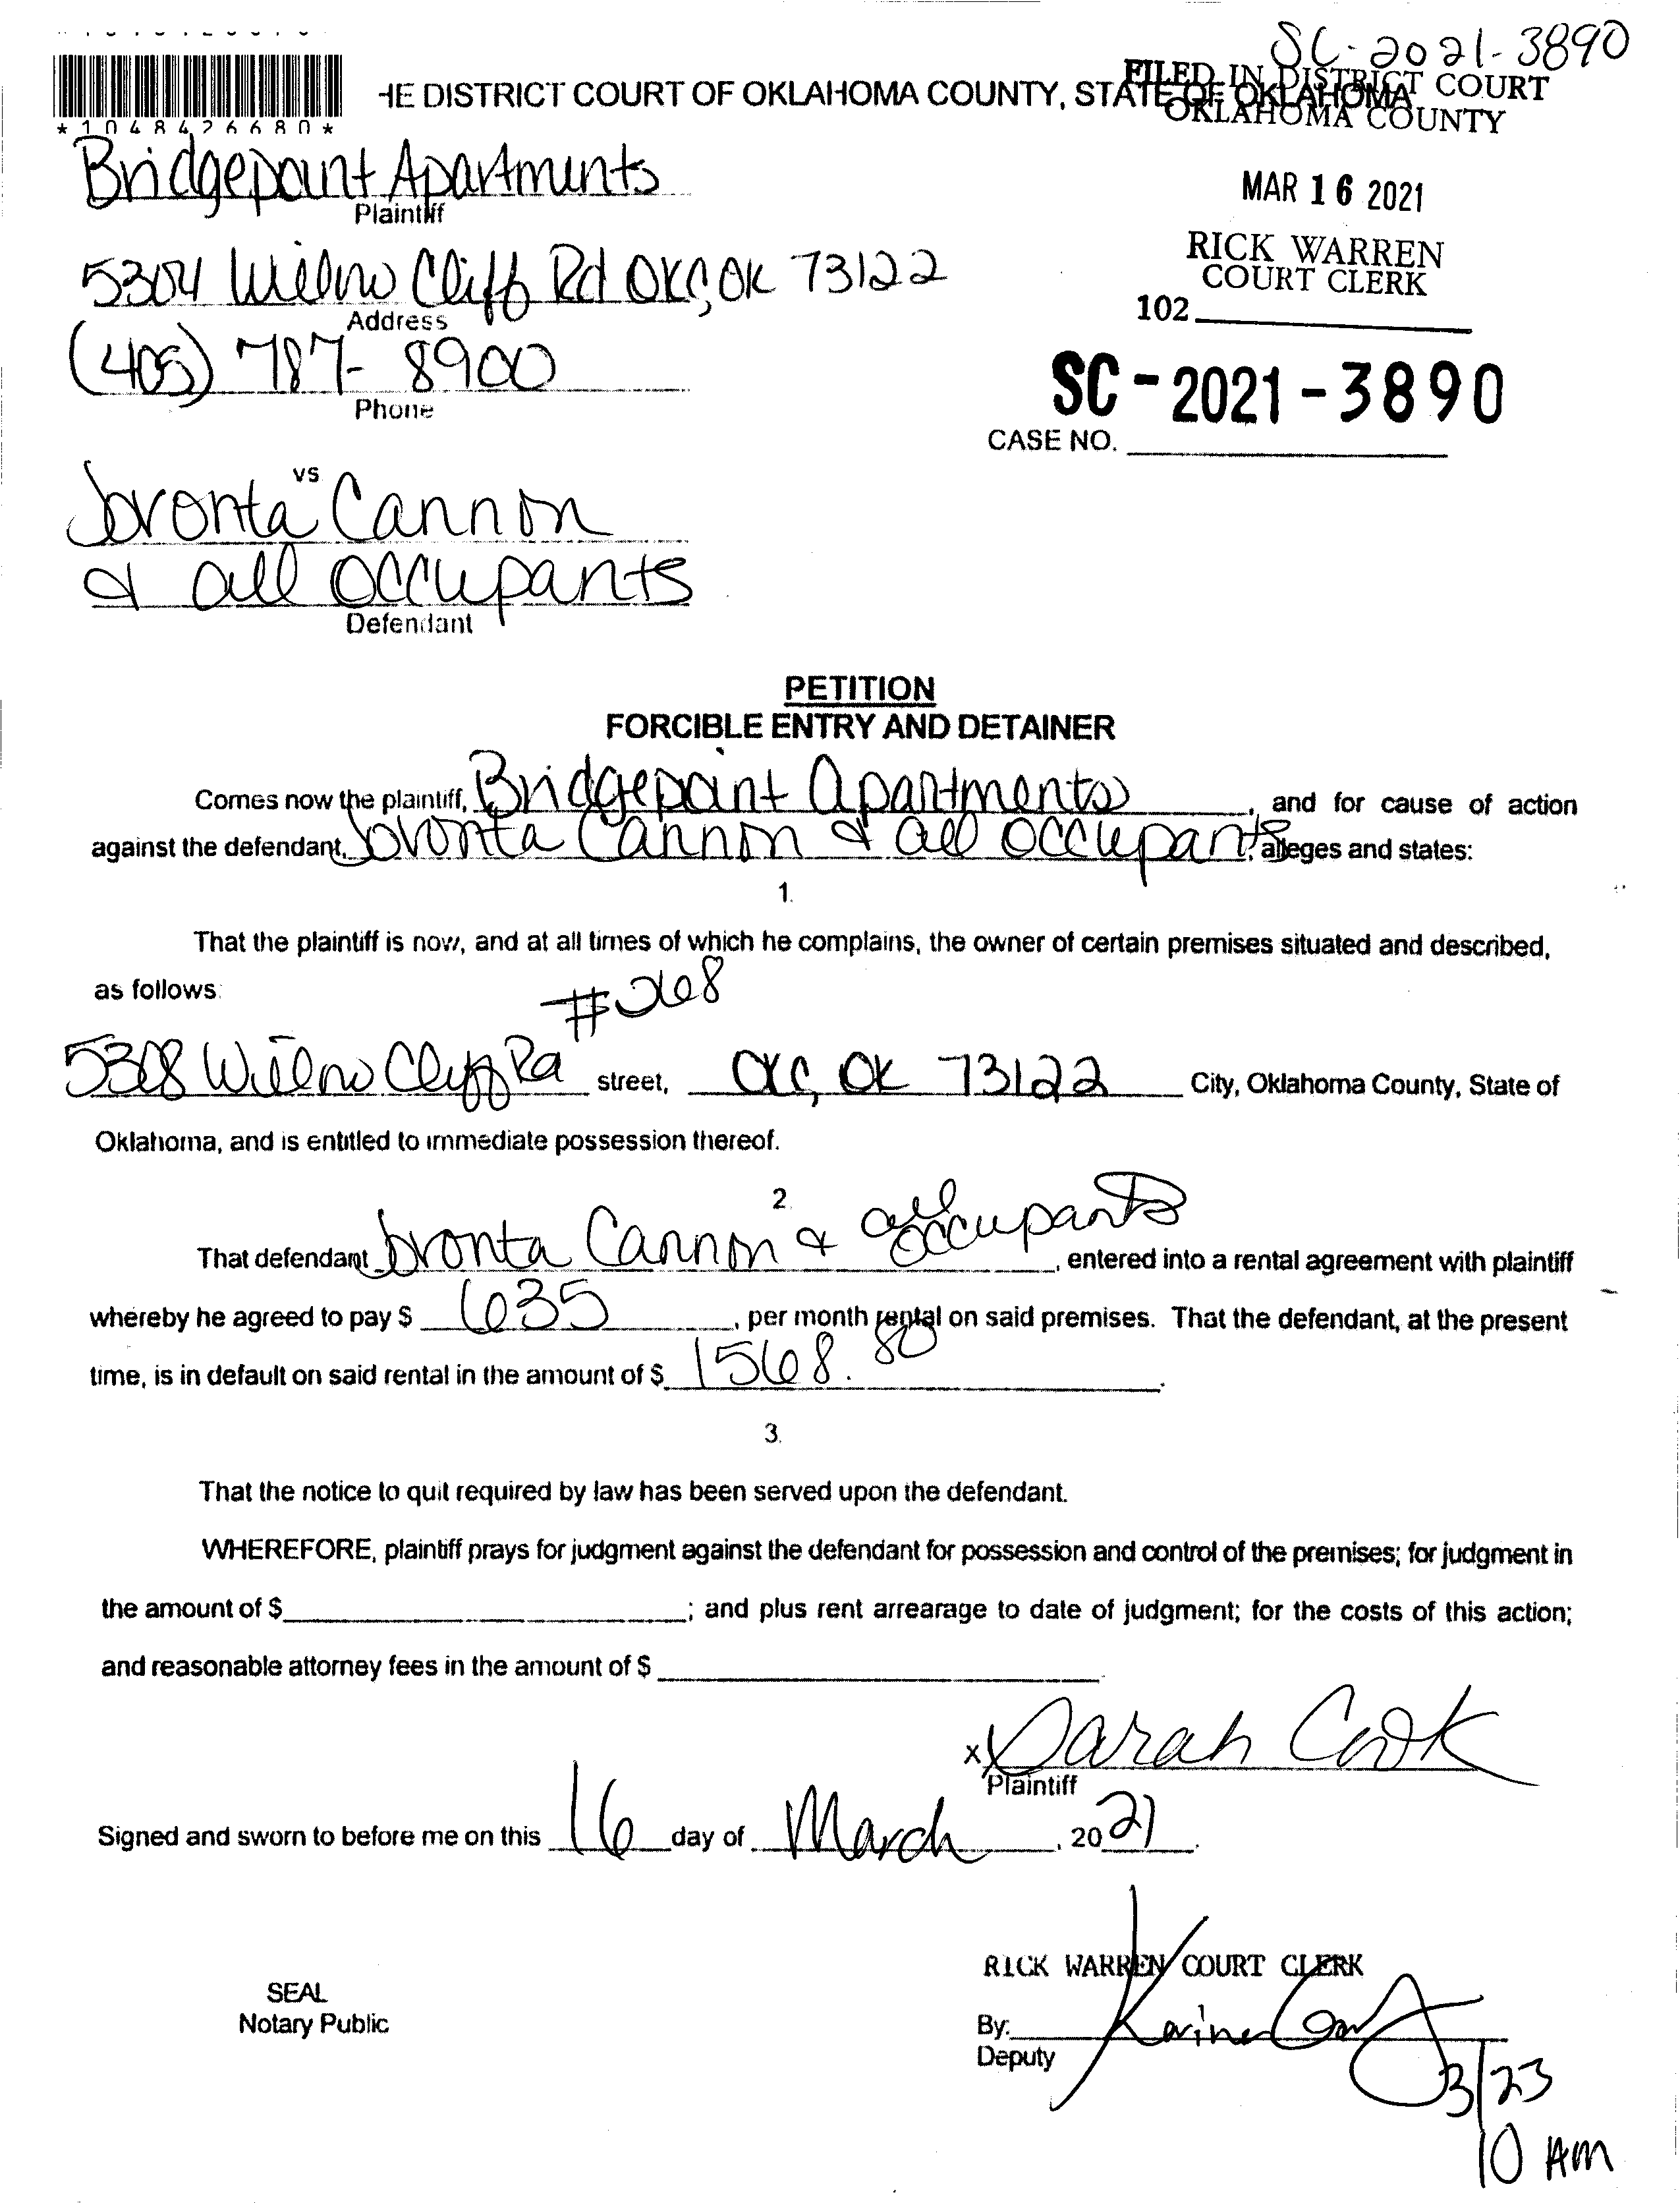 SC-2021-3890
HE DISTRICT COURT OF OKLAHOMA COUNTY, STATE OF OKLAHOMA
FILED IN DISTRICT COURT
OKLAHOMA COUNTY
*1048426680*
Bridgepoint Apartments
Plaintiff
MAR 16 2021
RICK WARREN
COURT CLERK
102
5304 Willow Cliff Rd OKC, OK 73122
Address
(405) 787-8900
Phone
SC-2021-3890
CASE NO.
vs
Cannon
& all occupants
Defendant
PETITION
FORCIBLE ENTRY AND DETAINER
Comes now the plaintiff, Bridgepoint Apartments, and for cause of action
against the defendant, Cannon & all occupants, alleges and states:
1.
That the plaintiff is now, and at all times of which he complains, the owner of certain premises situated and described,
as follows:
#268
5308 Willow Cliff Rd street, OKC, OK 73122 City, Oklahoma County, State of
Oklahoma, and is entitled to immediate possession thereof.
2.
That defendant Cannon & all occupants, entered into a rental agreement with plaintiff
whereby he agreed to pay $ 635, per month rental on said premises. That the defendant, at the present
time, is in default on said rental in the amount of $ 1568.80.
3.
That the notice to quit required by law has been served upon the defendant.
WHEREFORE, plaintiff prays for judgment against the defendant for possession and control of the premises; for judgment in
the amount of $ ; and plus rent arrearage to date of judgment; for the costs of this action;
and reasonable attorney fees in the amount of $ .
x Sarah Cook
Plaintiff
Signed and sworn to before me on this 16 day of March, 2021.
RICK WARREN COURT CLERK
SEAL
Notary Public
By:
Deputy
3/23
10 AM